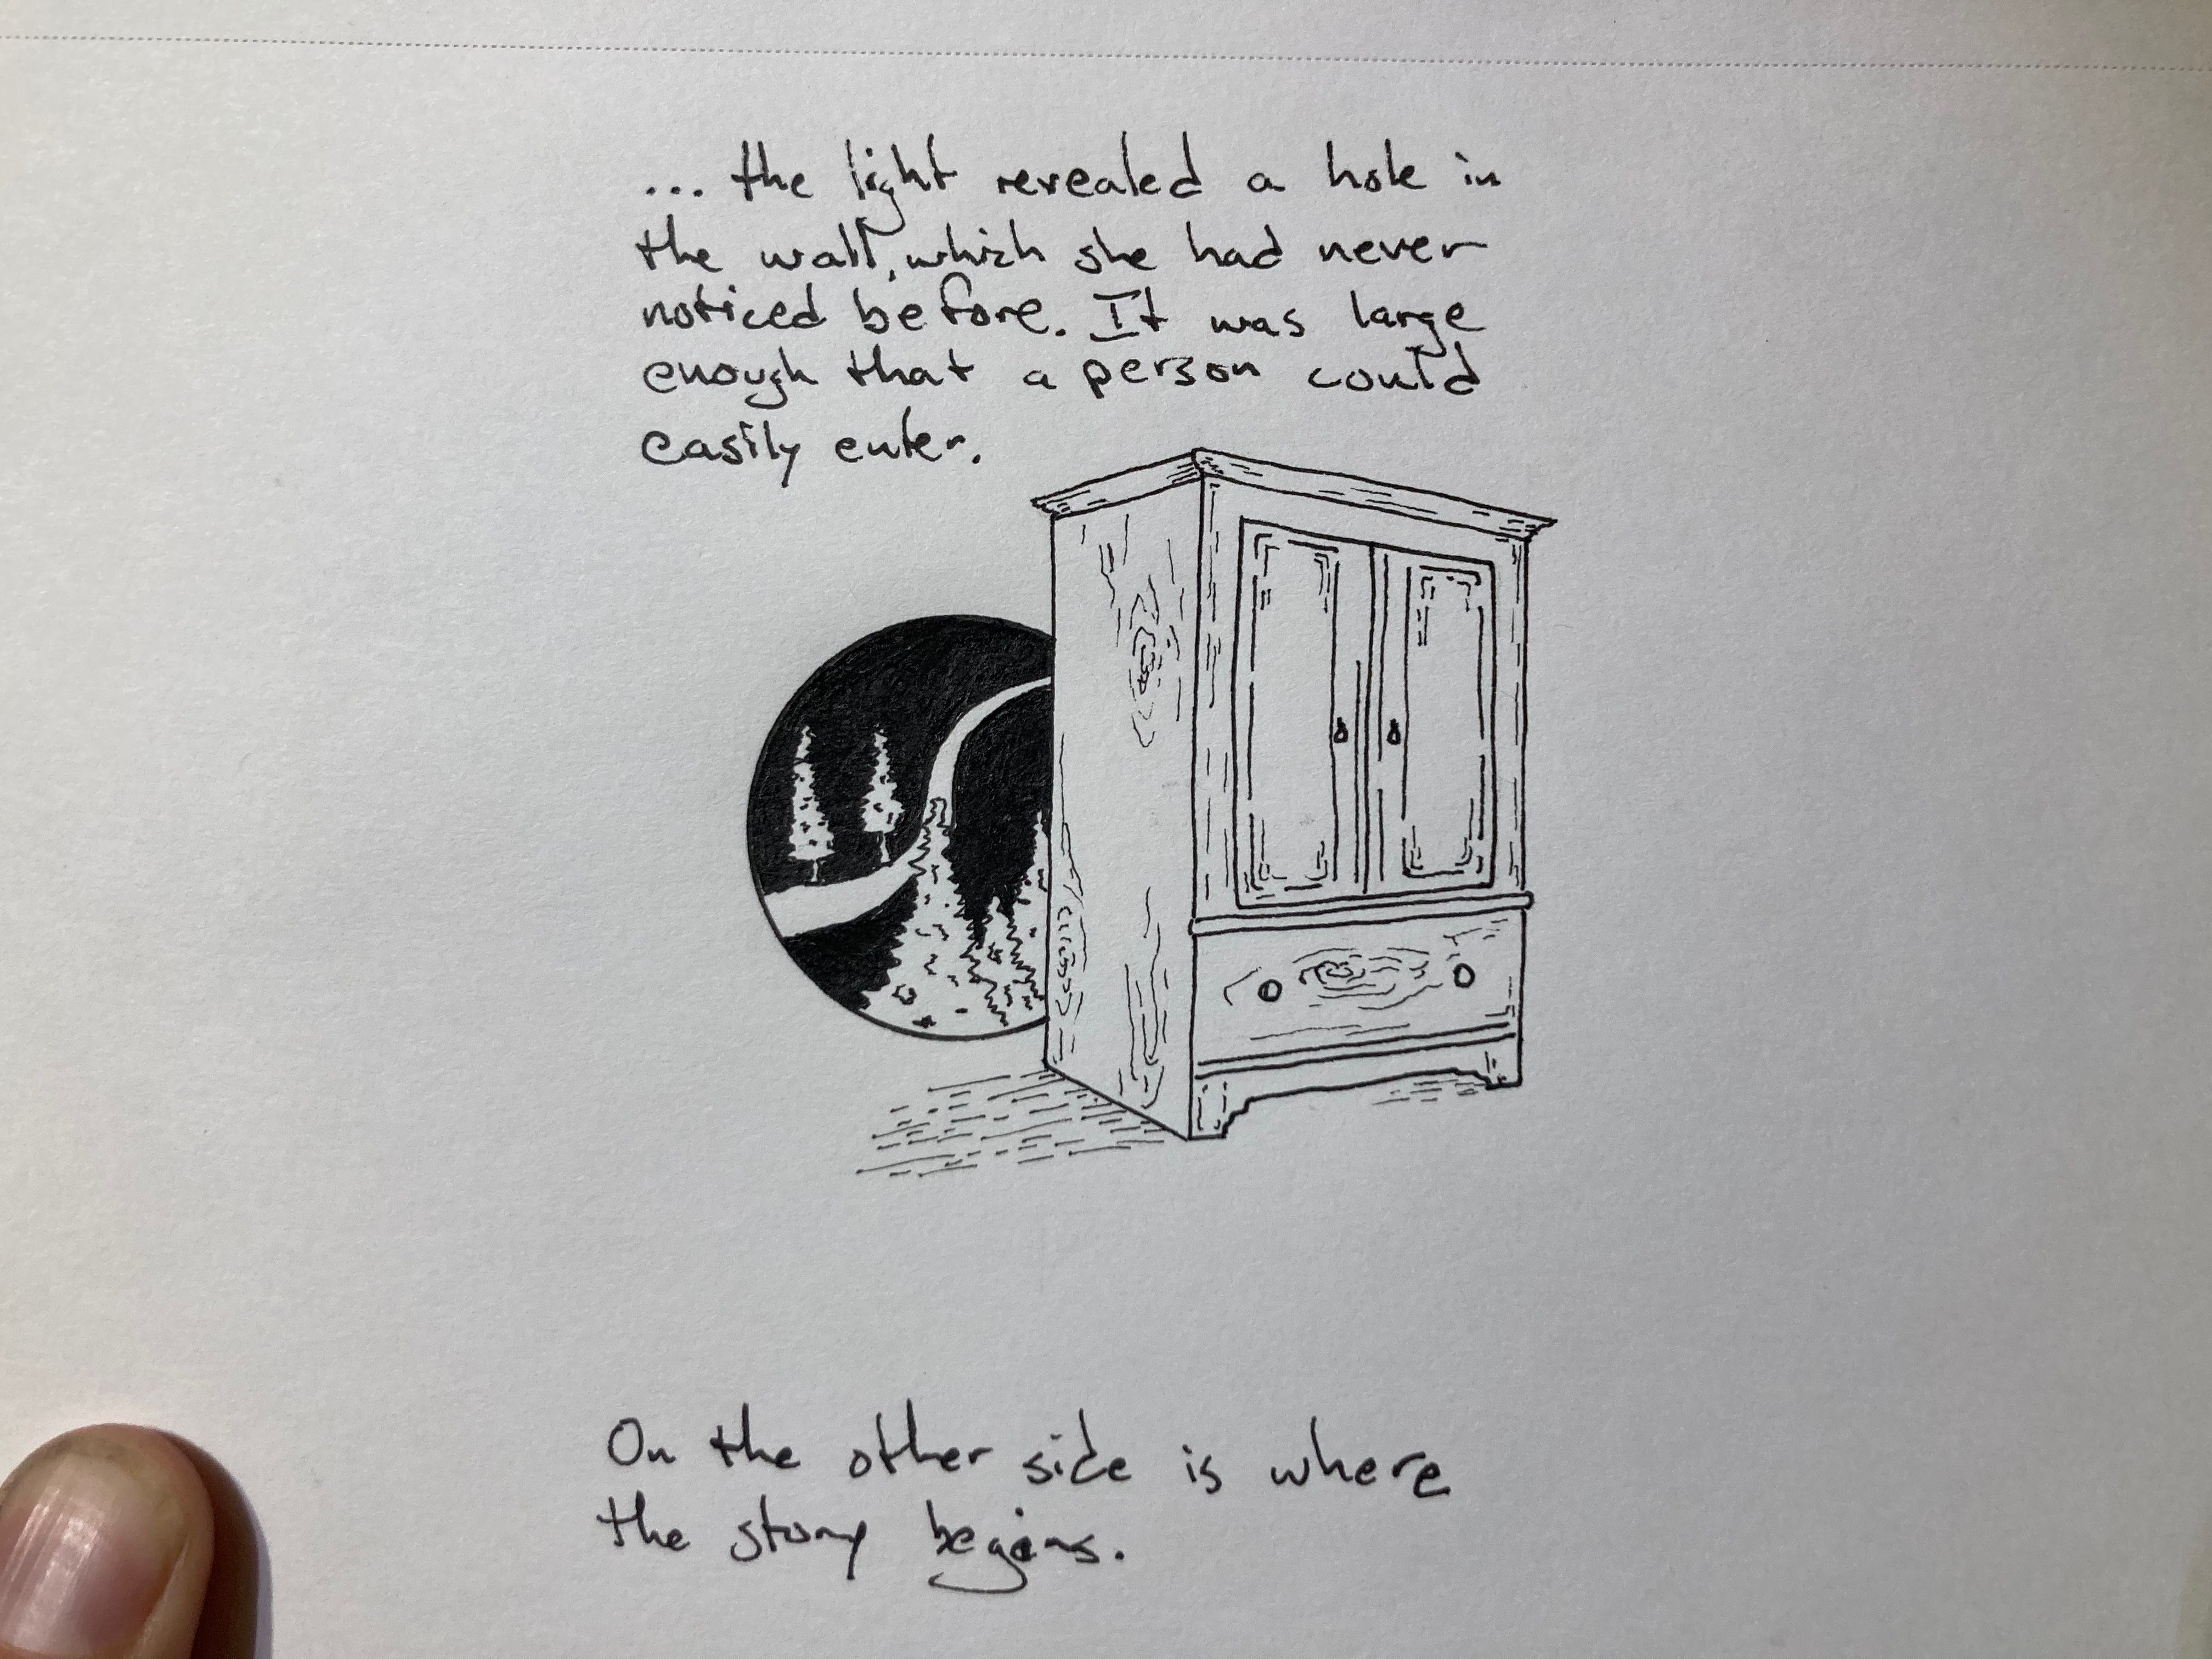 ... the light revealed a hole in
the wall, which she had never
noticed before. It was large
enough that a person could
easily enter.
On the other side is where
the story begins.